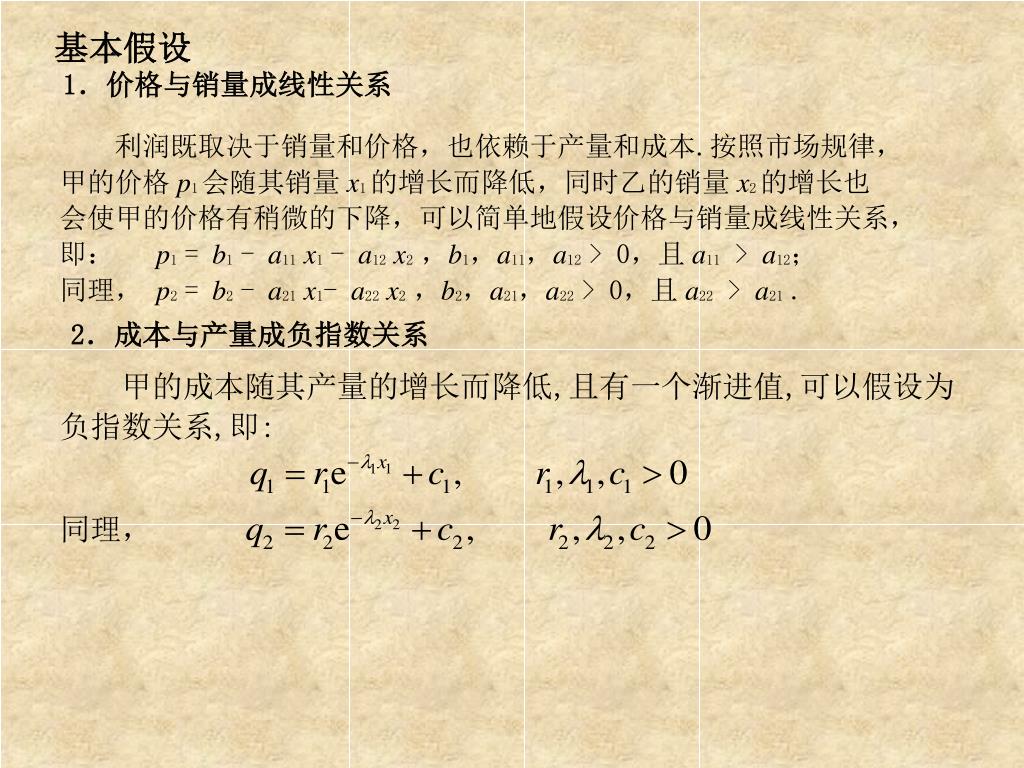 基本假设
1．价格与销量成线性关系
利润既取决于销量和价格，也依赖于产量和成本.按照市场规律，
甲的价格 p₁ 会随其销量 x₁ 的增长而降低，同时乙的销量 x₂ 的增长也
会使甲的价格有稍微的下降，可以简单地假设价格与销量成线性关系，
即： p₁ = b₁ - a₁₁ x₁ - a₁₂ x₂ ，b₁，a₁₁，a₁₂ > 0，且 a₁₁ > a₁₂；
同理， p₂ = b₂ - a₂₁ x₁- a₂₂ x₂ ，b₂，a₂₁，a₂₂ > 0，且 a₂₂ > a₂₁ .
2．成本与产量成负指数关系
甲的成本随其产量的增长而降低,且有一个渐进值,可以假设为
负指数关系,即:
q₁ = r₁e^(−λ₁x₁) + c₁, r₁,λ₁,c₁ > 0
同理， q₂ = r₂e^(−λ₂x₂) + c₂, r₂,λ₂,c₂ > 0